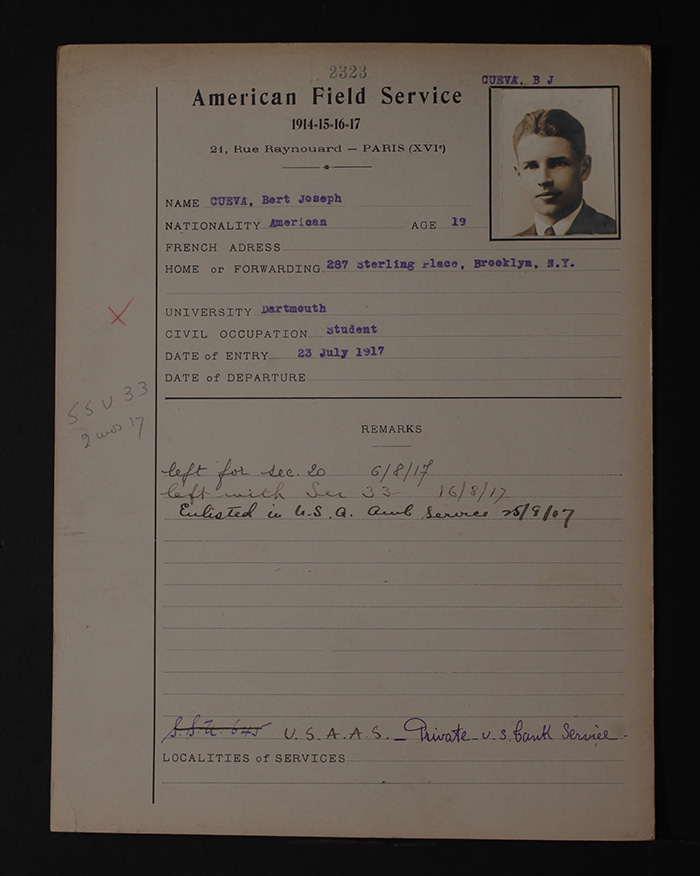 2323
CUEVA, B J
American Field Service
1914-15-16-17
21, Rue Raynouard — PARIS (XVIe)
NAME CUEVA, Bert Joseph
NATIONALITY American AGE 19
FRENCH ADRESS
HOME or FORWARDING 287 Sterling Place, Brooklyn, N.Y.
UNIVERSITY Dartmouth
CIVIL OCCUPATION Student
DATE of ENTRY 23 July 1917
DATE of DEPARTURE
SSU 33
2 mos 17
REMARKS
left for sec. 20 6/8/17
left with Sec 33 16/8/17
Enlisted in U.S.A. Amb Service 25/9/07
S.S.U. 645 U.S.A.A.S. – Private – U.S. Service -
LOCALITIES of SERVICES